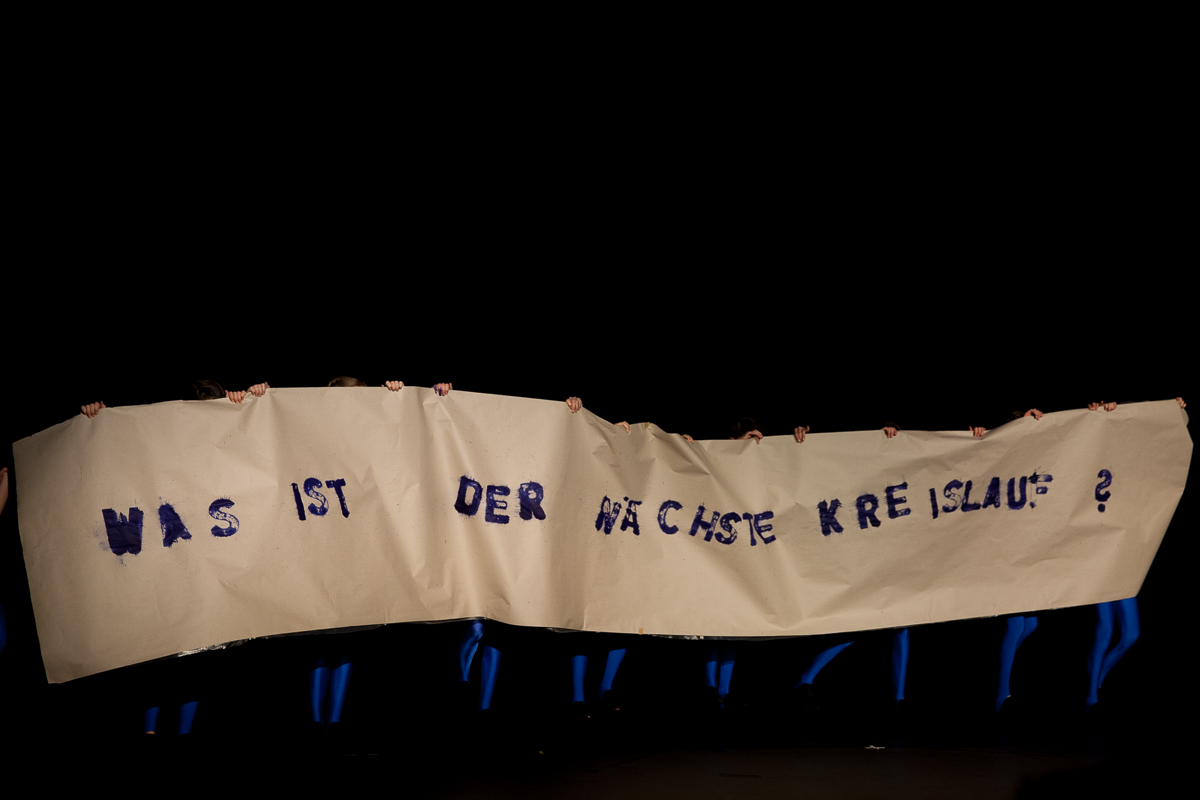 WAS IST DER NÄCHSTE KREISLAUF ?